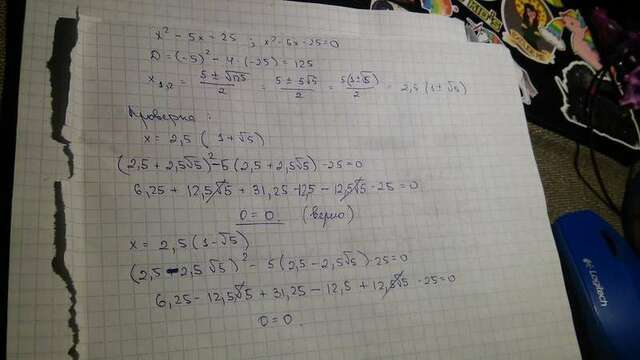 x² - 5x = 25 ; x² - 5x - 25 = 0
D = (-5)² - 4·(-25) = 125
x₁,₂ = (5 ± √125)/2 = (5 ± 5√5)/2 = 5(1 ± √5)/2 = 2,5 (1 ± √5)
Проверка:
x = 2,5 (1 + √5)
(2,5 + 2,5√5)² - 5 (2,5 + 2,5√5) - 25 = 0
6,25 + 12,5√5 + 31,25 - 12,5 - 12,5√5 - 25 = 0
0 = 0. (верно)
x = 2,5 (1 - √5)
(2,5 - 2,5√5)² - 5(2,5 - 2,5√5) - 25 = 0
6,25 - 12,5√5 + 31,25 - 12,5 + 12,5√5 - 25 = 0
0 = 0.
Logitech